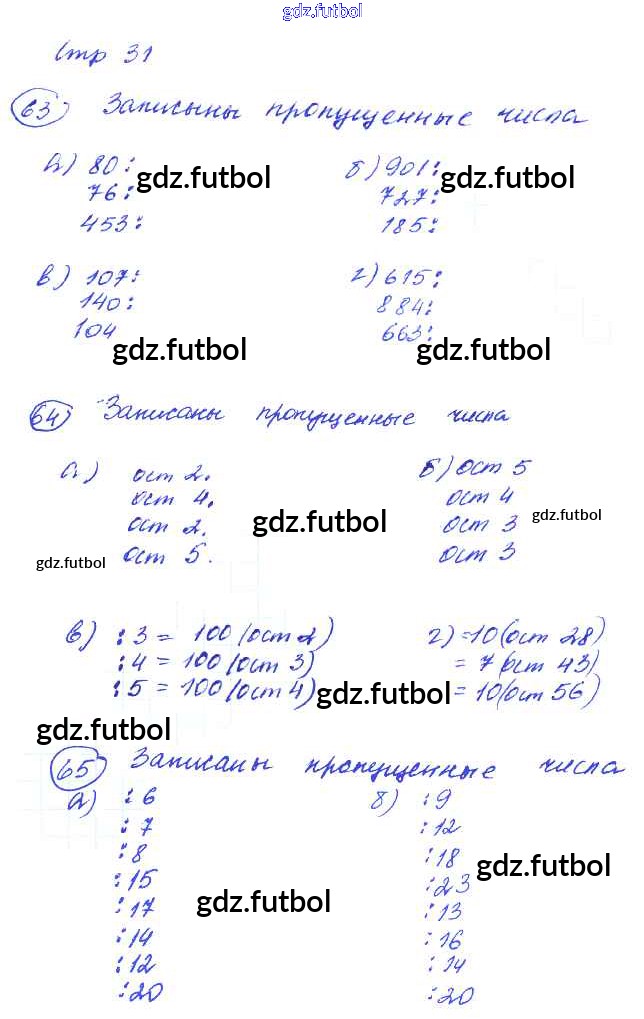 gdz.futbol
Стр 31
63) Записыны пропущенные числа
а) 80:
76:
453:
gdz.futbol
б) 901:
727:
185:
gdz.futbol
в) 107:
140:
104
gdz.futbol
г) 615:
884:
663:
gdz.futbol
64) Записаны пропущенные числа
а) ост 2.
ост 4.
ост 2.
ост 5.
gdz.futbol
gdz.futbol
б) ост 5
ост 4
ост 3
ост 3
gdz.futbol
в) :3 = 100 (ост 2)
:4 = 100 (ост 3)
:5 = 100 (ост 4)
gdz.futbol
г) =10 (ост 28)
= 7 (ост 43)
= 10 (ост 56)
gdz.futbol
65) Записаны пропущенные числа
а) :6
:7
:8
:15
:17
:14
:12
:20
gdz.futbol
б) :9
:12
:18
:23
:13
:16
:14
:20
gdz.futbol